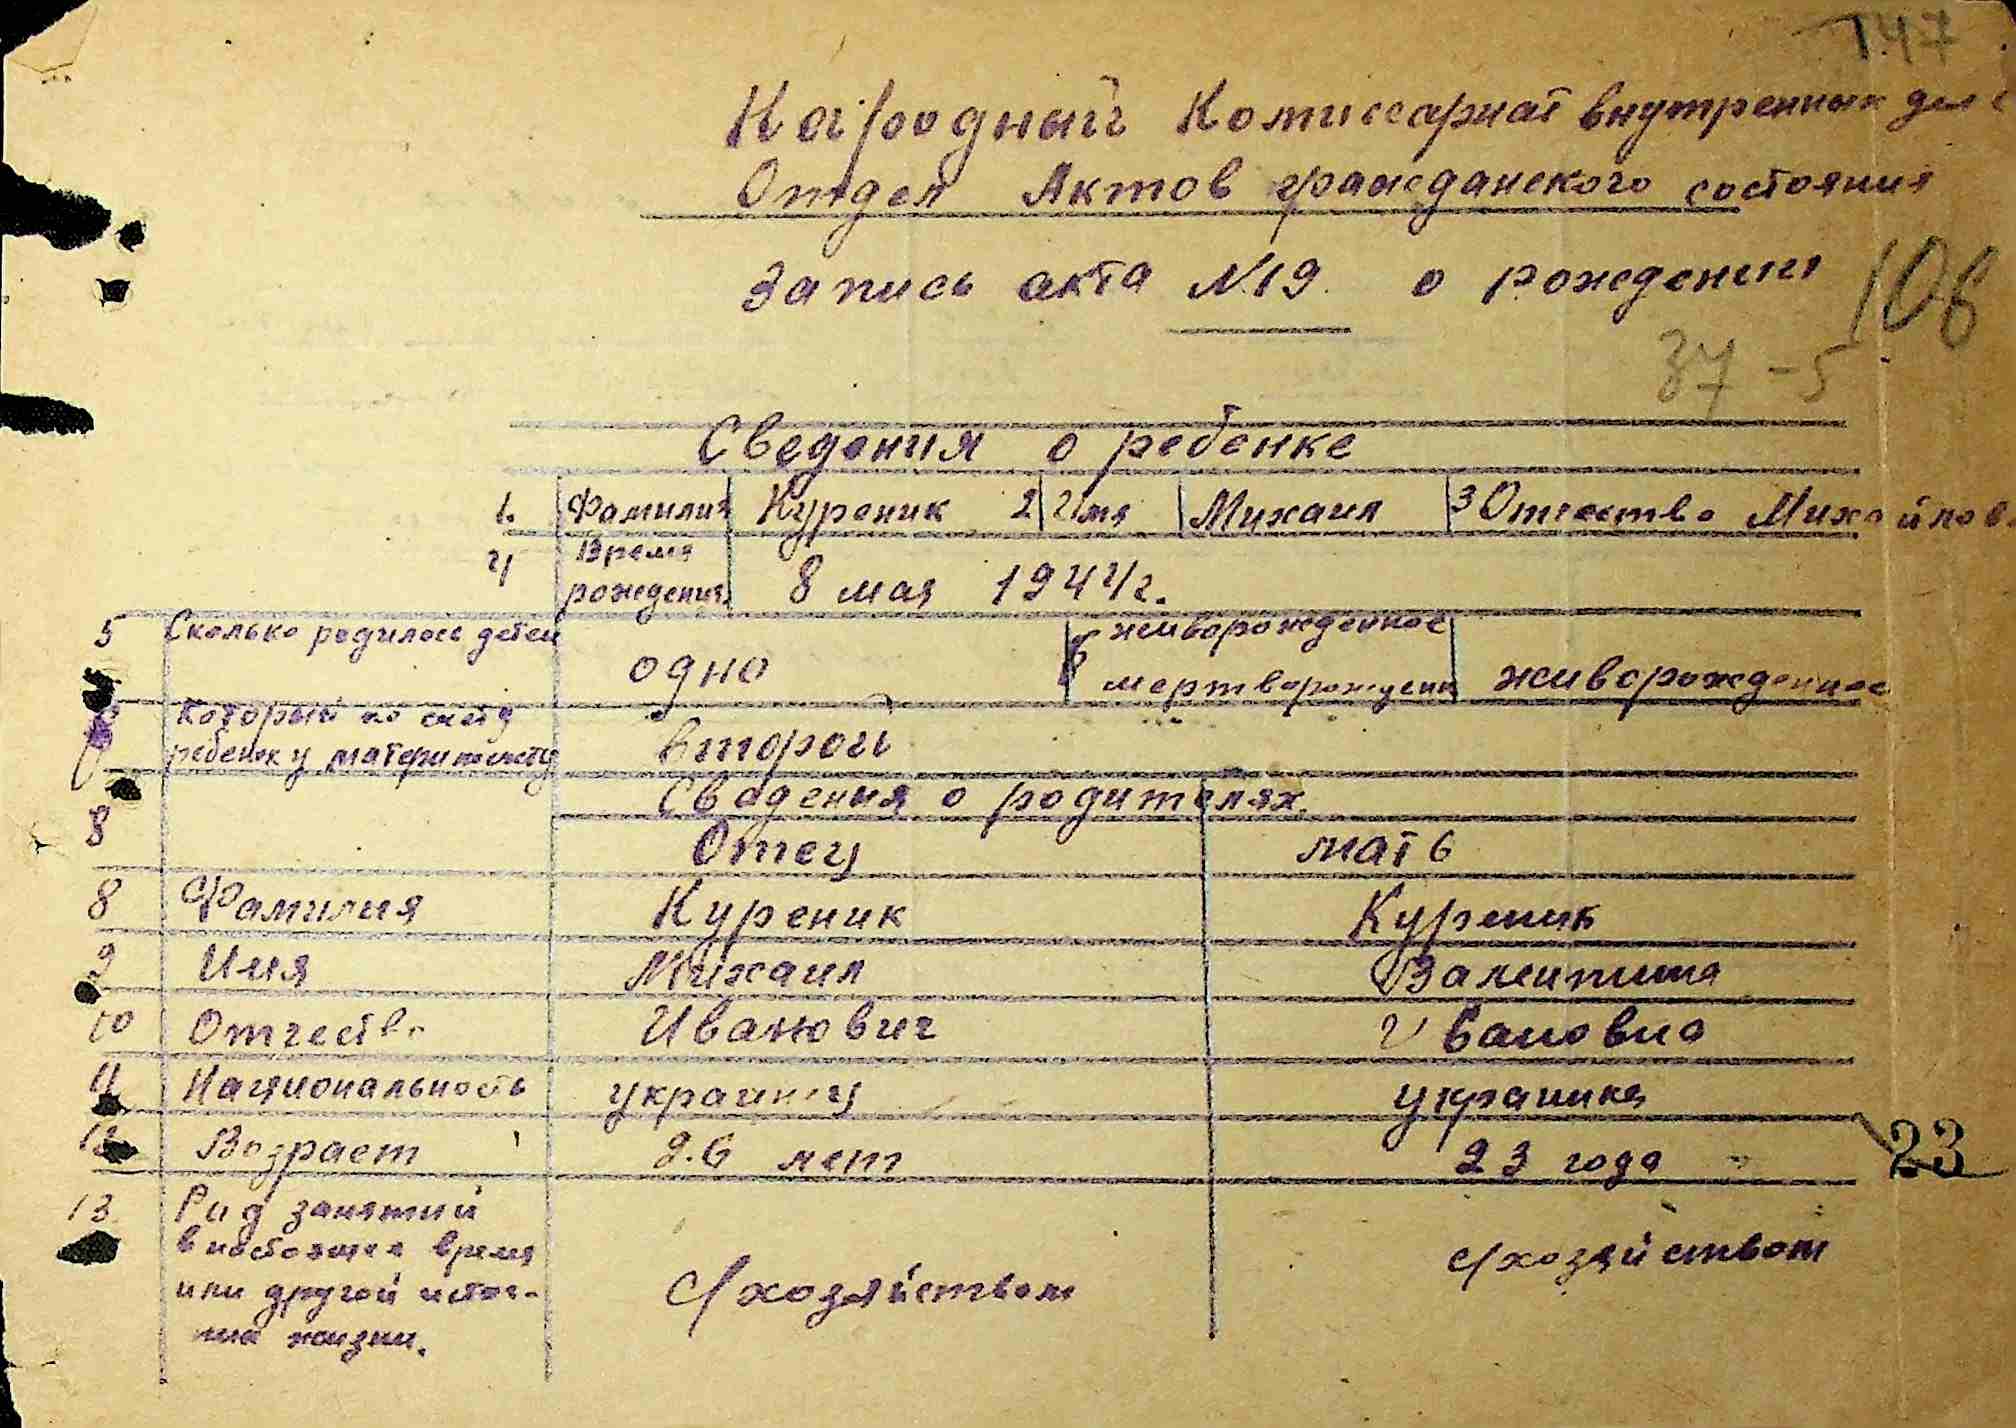 147
Народный Комиссариат внутренних дел
Отдел Актов гражданского состояния
Запись акта №19. о рождении
106
37-5
Сведения о ребенке
1. Фамилия Куреник 2 Имя Михаил 3 Отчество Михайлов
4 Время рождения 8 мая 1944г.
5 Сколько родилось детей одно 6 живорожденное мертворожден живорожденное
Который по счету
ребенок у матери второй
Сведения о родителях.
8 Отец мать
8 Фамилия Куреник Куреник
9 Имя Михаил Валентина
10 Отчество Иванович Ивановна
11 Национальность украинец украинка
12. Возраст 26 лет 23 года
23
13. Род занятий
в настоящее время
или другой источ-
ник жизни. с/хозяйством с/хозяйством